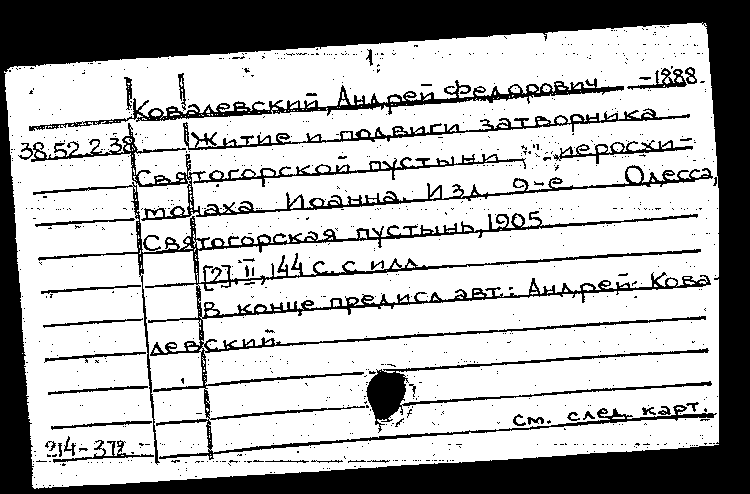 1
Ковалевский, Андрей Федорович –1888
38.52.2.38. Житие и подвиги затворника
Святогорской пустыни иеросхи-
монаха Иоанна. Изд. 9-е Одесса,
Святогорская пустынь, 1905
[2], II, 144 с. с илл.
В конце предисл авт.: Андрей Кова-
левский.
см. след. карт.
214-372